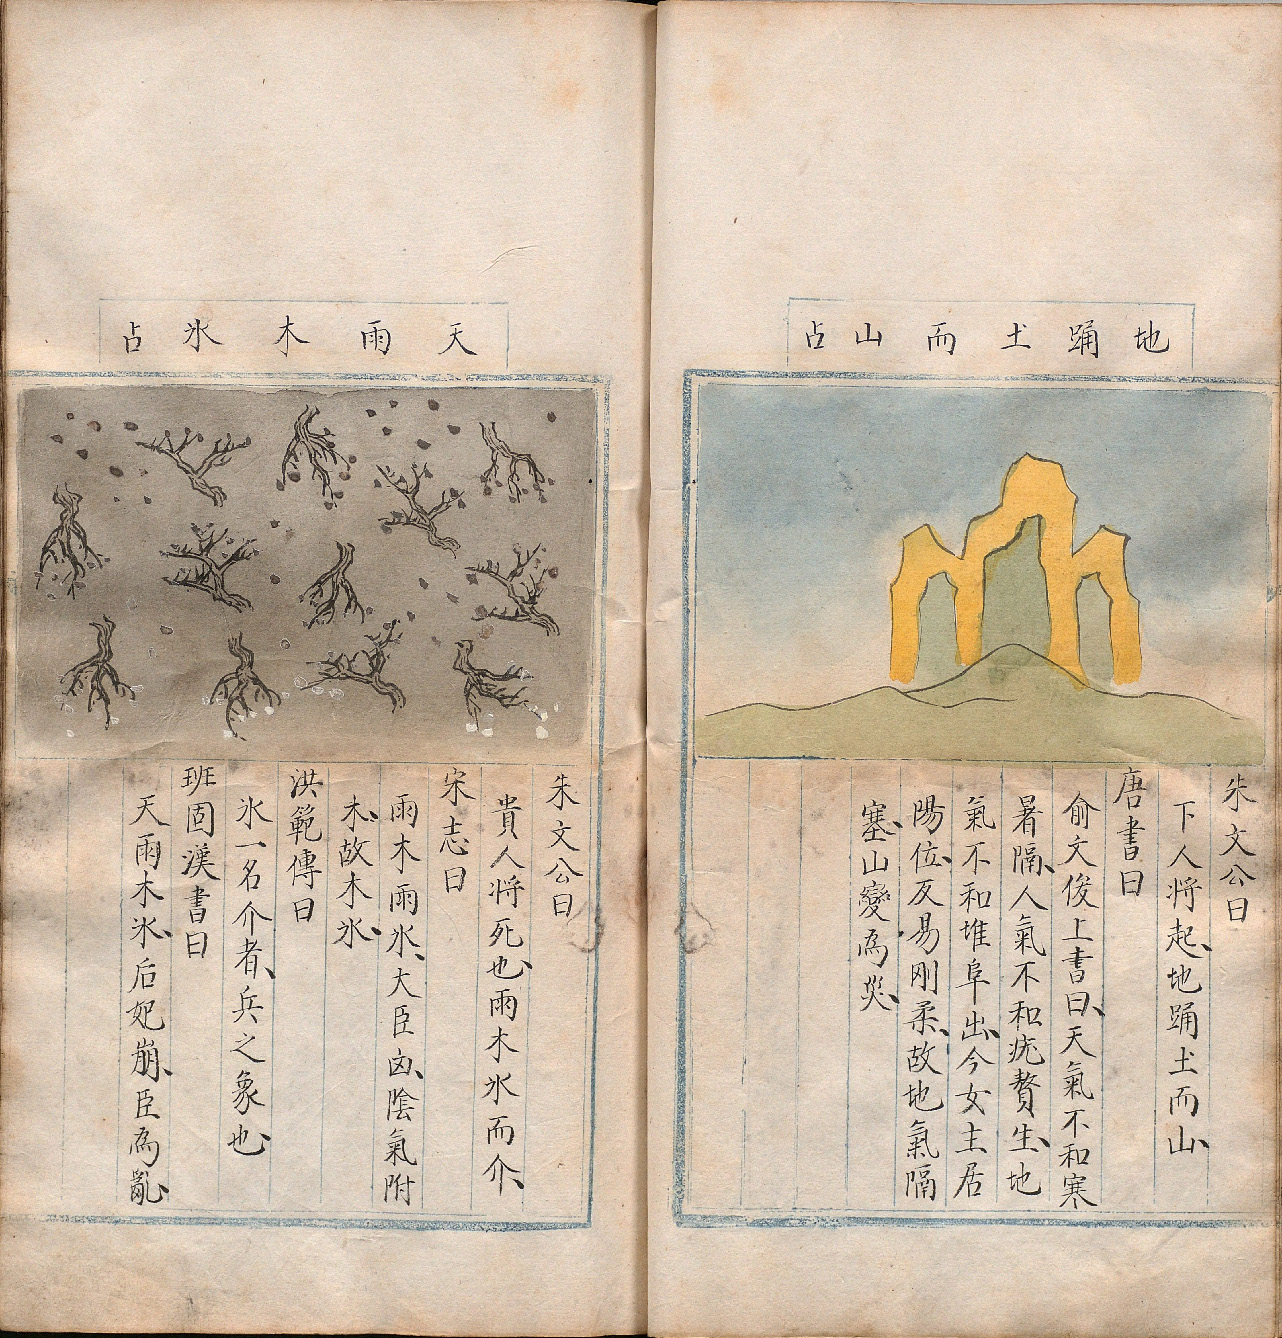 地踊土而山占
朱文公曰
下人將起、地踊土而山、
唐書曰
俞文俊上書曰、天氣不和寒
暑隔、人氣不和疣贅生、地
氣不和堆阜出、今女主居
陽位、反易剛柔、故地氣隔
塞、山變為災、
天雨木氷占
朱文公曰
貴人將死也、雨木氷而介、
宋志曰
雨木雨氷、大臣凶、陰氣附
木、故木氷、
洪範傳曰
氷一名介者、兵之象也、
班固漢書曰
天雨木氷、后妃崩、臣為亂、